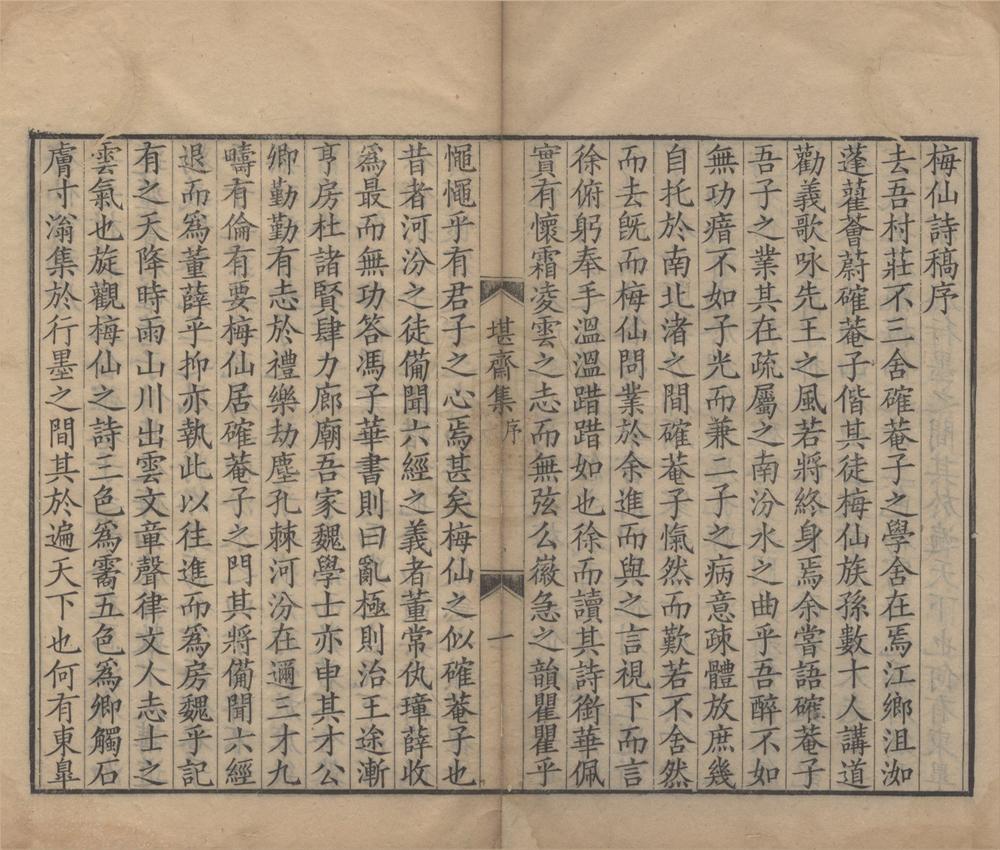 梅仙詩稿序
去吾村莊不三舍確菴子之學舍在焉江鄉沮洳
蓬藋薈蔚確菴子偕其徒梅仙族孫數十人講道
勸義歌咏先王之風若將終身焉余嘗語確菴子
吾子之業其在疏屬之南汾水之曲乎吾醉不如
無功瘖不如子光而兼二子之病意疎體放庶幾
自托於南北渚之間確菴子愾然而歎若不舍然
而去旣而梅仙問業於余進而與之言視下而言
徐俯躬奉手溫溫踖踖如也徐而讀其詩銜華佩
實有懷霜凌雲之志而無弦么徽急之韻瞿瞿乎
堪齋集
序
一
㥏㥏乎有君子之心焉甚矣梅仙之似確菴子也
昔者河汾之徒備聞六經之義者董常仇璋薛收
爲最而無功答馮子華書則曰亂極則治王途漸
亨房杜諸賢肆力廊廟吾家魏學士亦申其才公
卿勤勤有志於禮樂劫塵孔棘河汾在邇三才九
疇有倫有要梅仙居確菴子之門其將備聞六經
退而爲董薛乎抑亦執此以往進而爲房魏乎記
有之天降時雨山川出雲文章聲律文人志士之
雲氣也旋觀梅仙之詩三色爲矞五色爲卿觸石
膚寸滃集於行墨之間其於遍天下也何有東臯